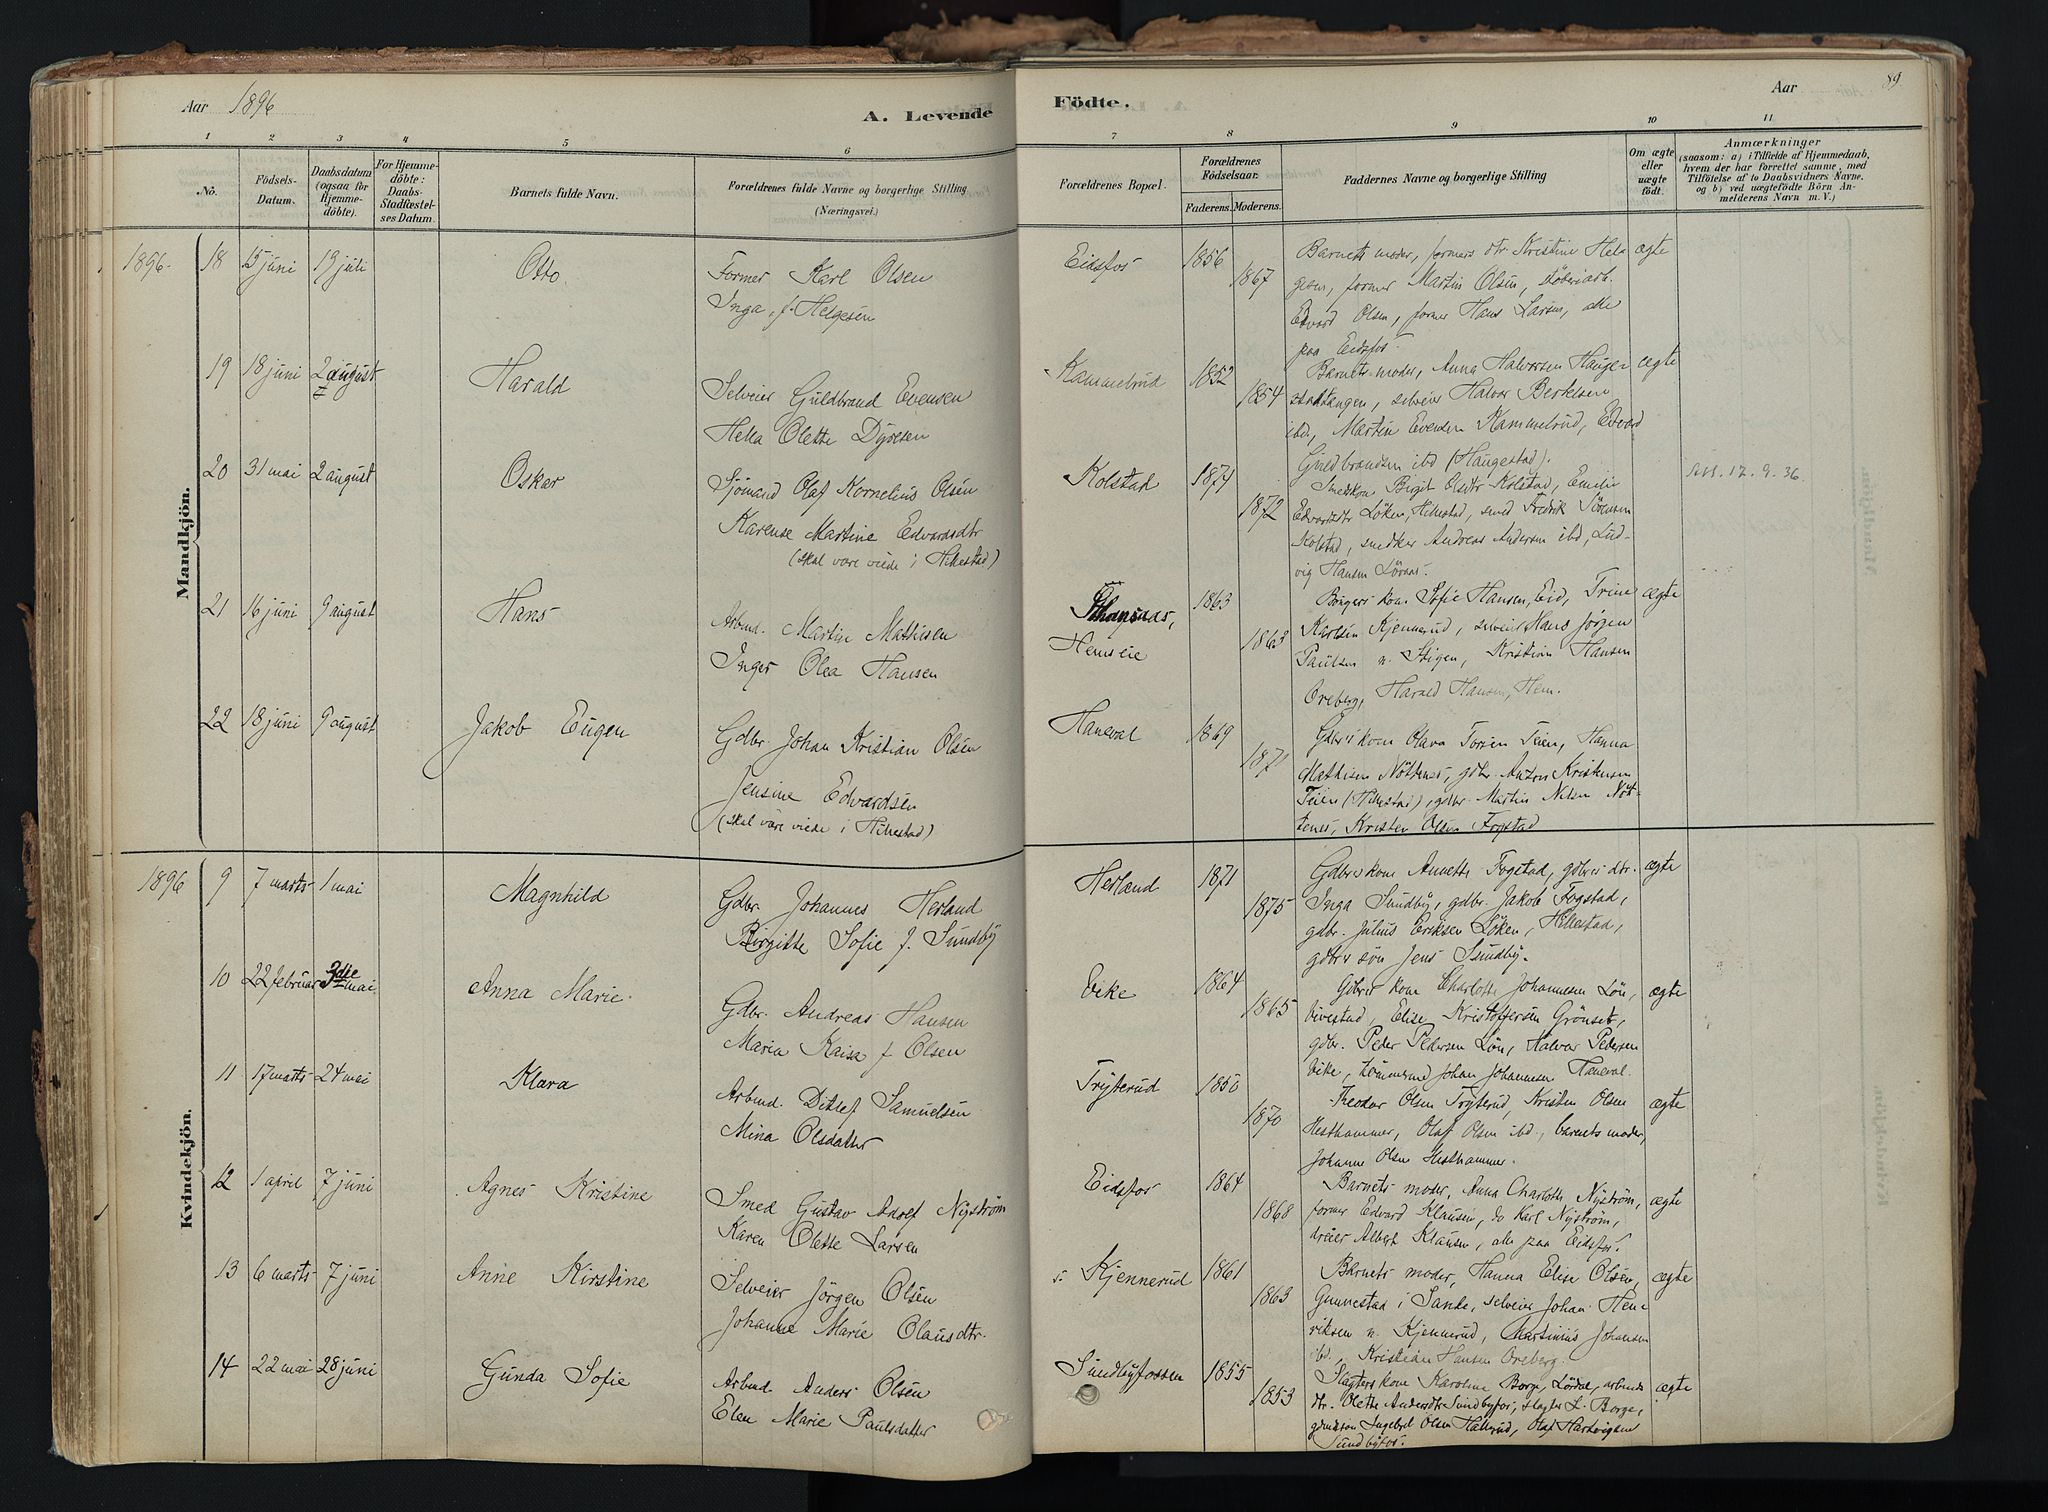 Aar 1896
A. Levende
Födte.
Aar
89
1 2 3 4 5 6 7 8 9 10 11
No.
Födsels-
Datum.
Daabsdatum
(ogsaa for
Hjemme-
döbte).
For Hjemme-
döbte:
Daabs-
Stadfæstel-
ses Datum.
Barnets fulde Navn.
Forældrenes fulde Navne og borgerlige Stilling
(Næringsvei.)
Forældrenes Bopæl.
Forældrenes
Födselsaar.
Faderens. Moderens.
Faddernes Navne og borgerlige Stilling
Om ægte
eller
uægte
födt.
Anmærkninger
(saasom: a) i Tilfælde af Hjemmedaab,
hvem der har forrettet samme, med
Tilföielse af to Daabsvidners Navne,
og b) ved uægtefödte Börn An-
melderens Navn m. V.)
Mandkjön.
1896. 18 15 juni 19 juli Otto.
Former Karl Olsen
Inga, f. Helgesen
Eidsfos 1856 1867
Barnets moder, formers dtr. Kristine Hel-
gesen, former Martin Olsen, støberiarb.
Edvard Olsen, former Hans Larsen, alle
paa Eidsfos.
ægte
19 18 juni 2 august Harald
Selveier Guldbrand Evensen
Hella Olette Dyresen
Kammelrud 1852 1854
Barnets moder, Anna Halvorsen Hauge-
stadtangen, selveier Halvor Bertelsen
ibd, Martin Evensen Kammelrud, Edvard
Guldbrandsen ibd (Haugestad).
ægte
20 31 mai 2 august Oskar
Sjömand Olaf Kornelius Olsen
Karense Martine Edvardsdtr
(skal være viede i Hillestad)
Kolstad 1871 1872
Smedkone Birgit Olsdtr Kolstad, Emilie
Edvardsdtr Löken, Hillestad, smed Fredrik Sörensen
Kolstad, snedker Andreas Andersen ibd, Lud-
vig Hansen
17. 9. 36.
21 16 juni 9 august Hans
Arbmd. Martin Mathisen
Inger Olea Hansen
Hemseie
1863 1863
kone Sofie Hansen, Eid, Trine
Karlsen Kjennerud, selveier Hans Jörgen
Paulsen n. Stigen, Kristian Hansen
Oreberg, Harald Hansen, Hem.
ægte
22 18 juni 9 august Jakob Eugen
Gdbr. Johan Kristian Olsen
Jensine Edvardsen
(skal være viede i Hillestad)
Haneval 1869 1871
Gdbrs kone Olava Teien, Hanna
Mathisen Nöttenes, gdbr. Anton Kristensen
Teien (Hillestad), gdbr. Martin Nilsen Nöt-
tenes, Kristen Olsen Fogstad
Kvindekjön.
1896 9 7 marts 1 mai Magnhild
Gdbr. Johannes Herland
Birgitte Sofie f. Sundby
Herland 1871 1875
Gdbrs kone Annette Fogstad, gdbrs dtr.
Inga Sundby, gdbr. Jakob Fogstad,
gdbr. Julius Eriksen Löken, Hillestad,
gdbrs sön Jens Sundby.
ægte
10 22 februar 3die mai. Anna Marie.
Gdbr. Andreas Hansen
Maria Kaisa f Olsen
Vike 1864 1865
Gdbrs kone Charlotte Johannesen Lön,
Vivestad, Elise Kristoffersen Grönset,
gdbr. Peder Pedersen Lön, Halvor Pedersen
Vike, tömmermd Johan Johannesen Haneval.
ægte
11 17 marts 24 mai Klara
Arbmd. Ditlef Samuelsen
Mina Olsdatter
Tryterud 1850 1870
Teodor Olsen Tryterud, Kristen Olsen
Hesthammer, Olaf Olsen ibd., barnets moder,
Johanne Olsen Hesthammer.
ægte
12 1 april 7 juni Agnes Kristine
Smed Gustav Adolf Nyström
Karen Olette Larsen
Eidsfos 1864 1868
Barnets moder, Anna Charlotte Nyström,
former Edvard Klausen, do Karl Nyström,
dreier Albert Klausen, alle paa Eidsfos.
ægte
13 6 marts 7 juni Anne Kirstine
Selveier Jörgen Olsen
Johanne Marie Olausdtr.
s. Kjennerud 1861 1863
Barnets moder, Hanna Elise Olsen,
Gunnestad i Sande, selveier Johan Hen-
riksen n. Kjennerud, Martinius Johansen
ibd., Kristian Hansen Oreberg.
ægte
14 22 mai 28 juni Gunda Sofie
Arbmd. Anders Olsen
Elen Marie Paulsdatter
Sundbyfossen 1855 1853
Slagters kone Karoline Borge, Lördal, arbmds
dtr. Olette Andersdtr Sundbyfos, slagter L. Borge,
gdmdssön Ingebret Olsen Hallerud, Olaf Hartvigsen
Sundbyfos.
ægte